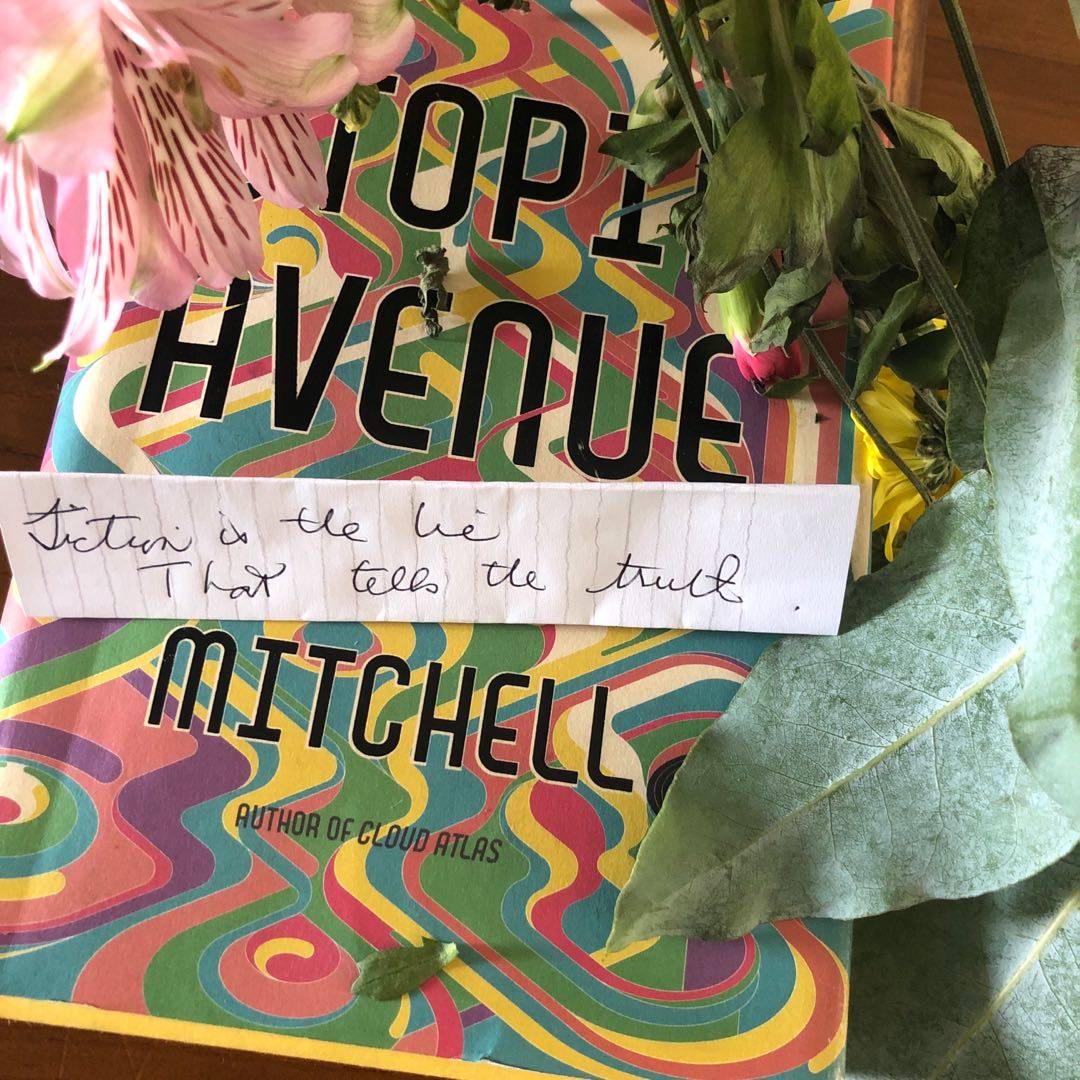 TOPI
AVENUE
Fiction is the lie
That tells the truth.
MITCHELL
AUTHOR OF CLOUD ATLAS